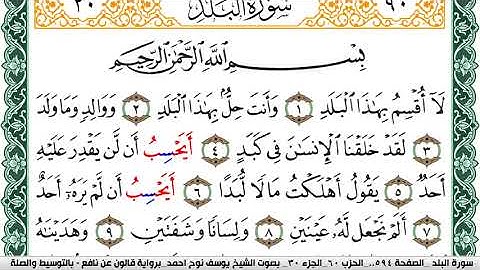 ٣٠ سُورَةُ البَلَدِ ٩٠
بِسْمِ اللَّهِ الرَّحْمَٰنِ الرَّحِيمِ
لَا أُقْسِمُ بِهَٰذَا الْبَلَدِ ١ وَأَنتَ حِلٌّ بِهَٰذَا الْبَلَدِ ٢ وَوَالِدٍ وَمَا وَلَدَ
٣ لَقَدْ خَلَقْنَا الْإِنسَٰنَ فِي كَبَدٍ ٤ أَيَحْسِبُ أَن لَّن يَقْدِرَ عَلَيْهِ
أَحَدٌ ٥ يَقُولُ أَهْلَكْتُ مَالًا لُّبَدًا ٦ أَيَحْسِبُ أَن لَّمْ يَرَهُ أَحَدٌ
٧ أَلَمْ نَجْعَل لَّهُ عَيْنَيْنِ ٨ وَلِسَانًا وَشَفَتَيْنِ ٩ وَهَدَيْنَٰهُ
سورة البلد_ الصفحة ٥٩٤،، الحزب ٦٠_ الجزء ٣٠_ بصوت الشيخ يوسف نوح احمد_ برواية قالون عن نافع - بالتوسيط والصلة